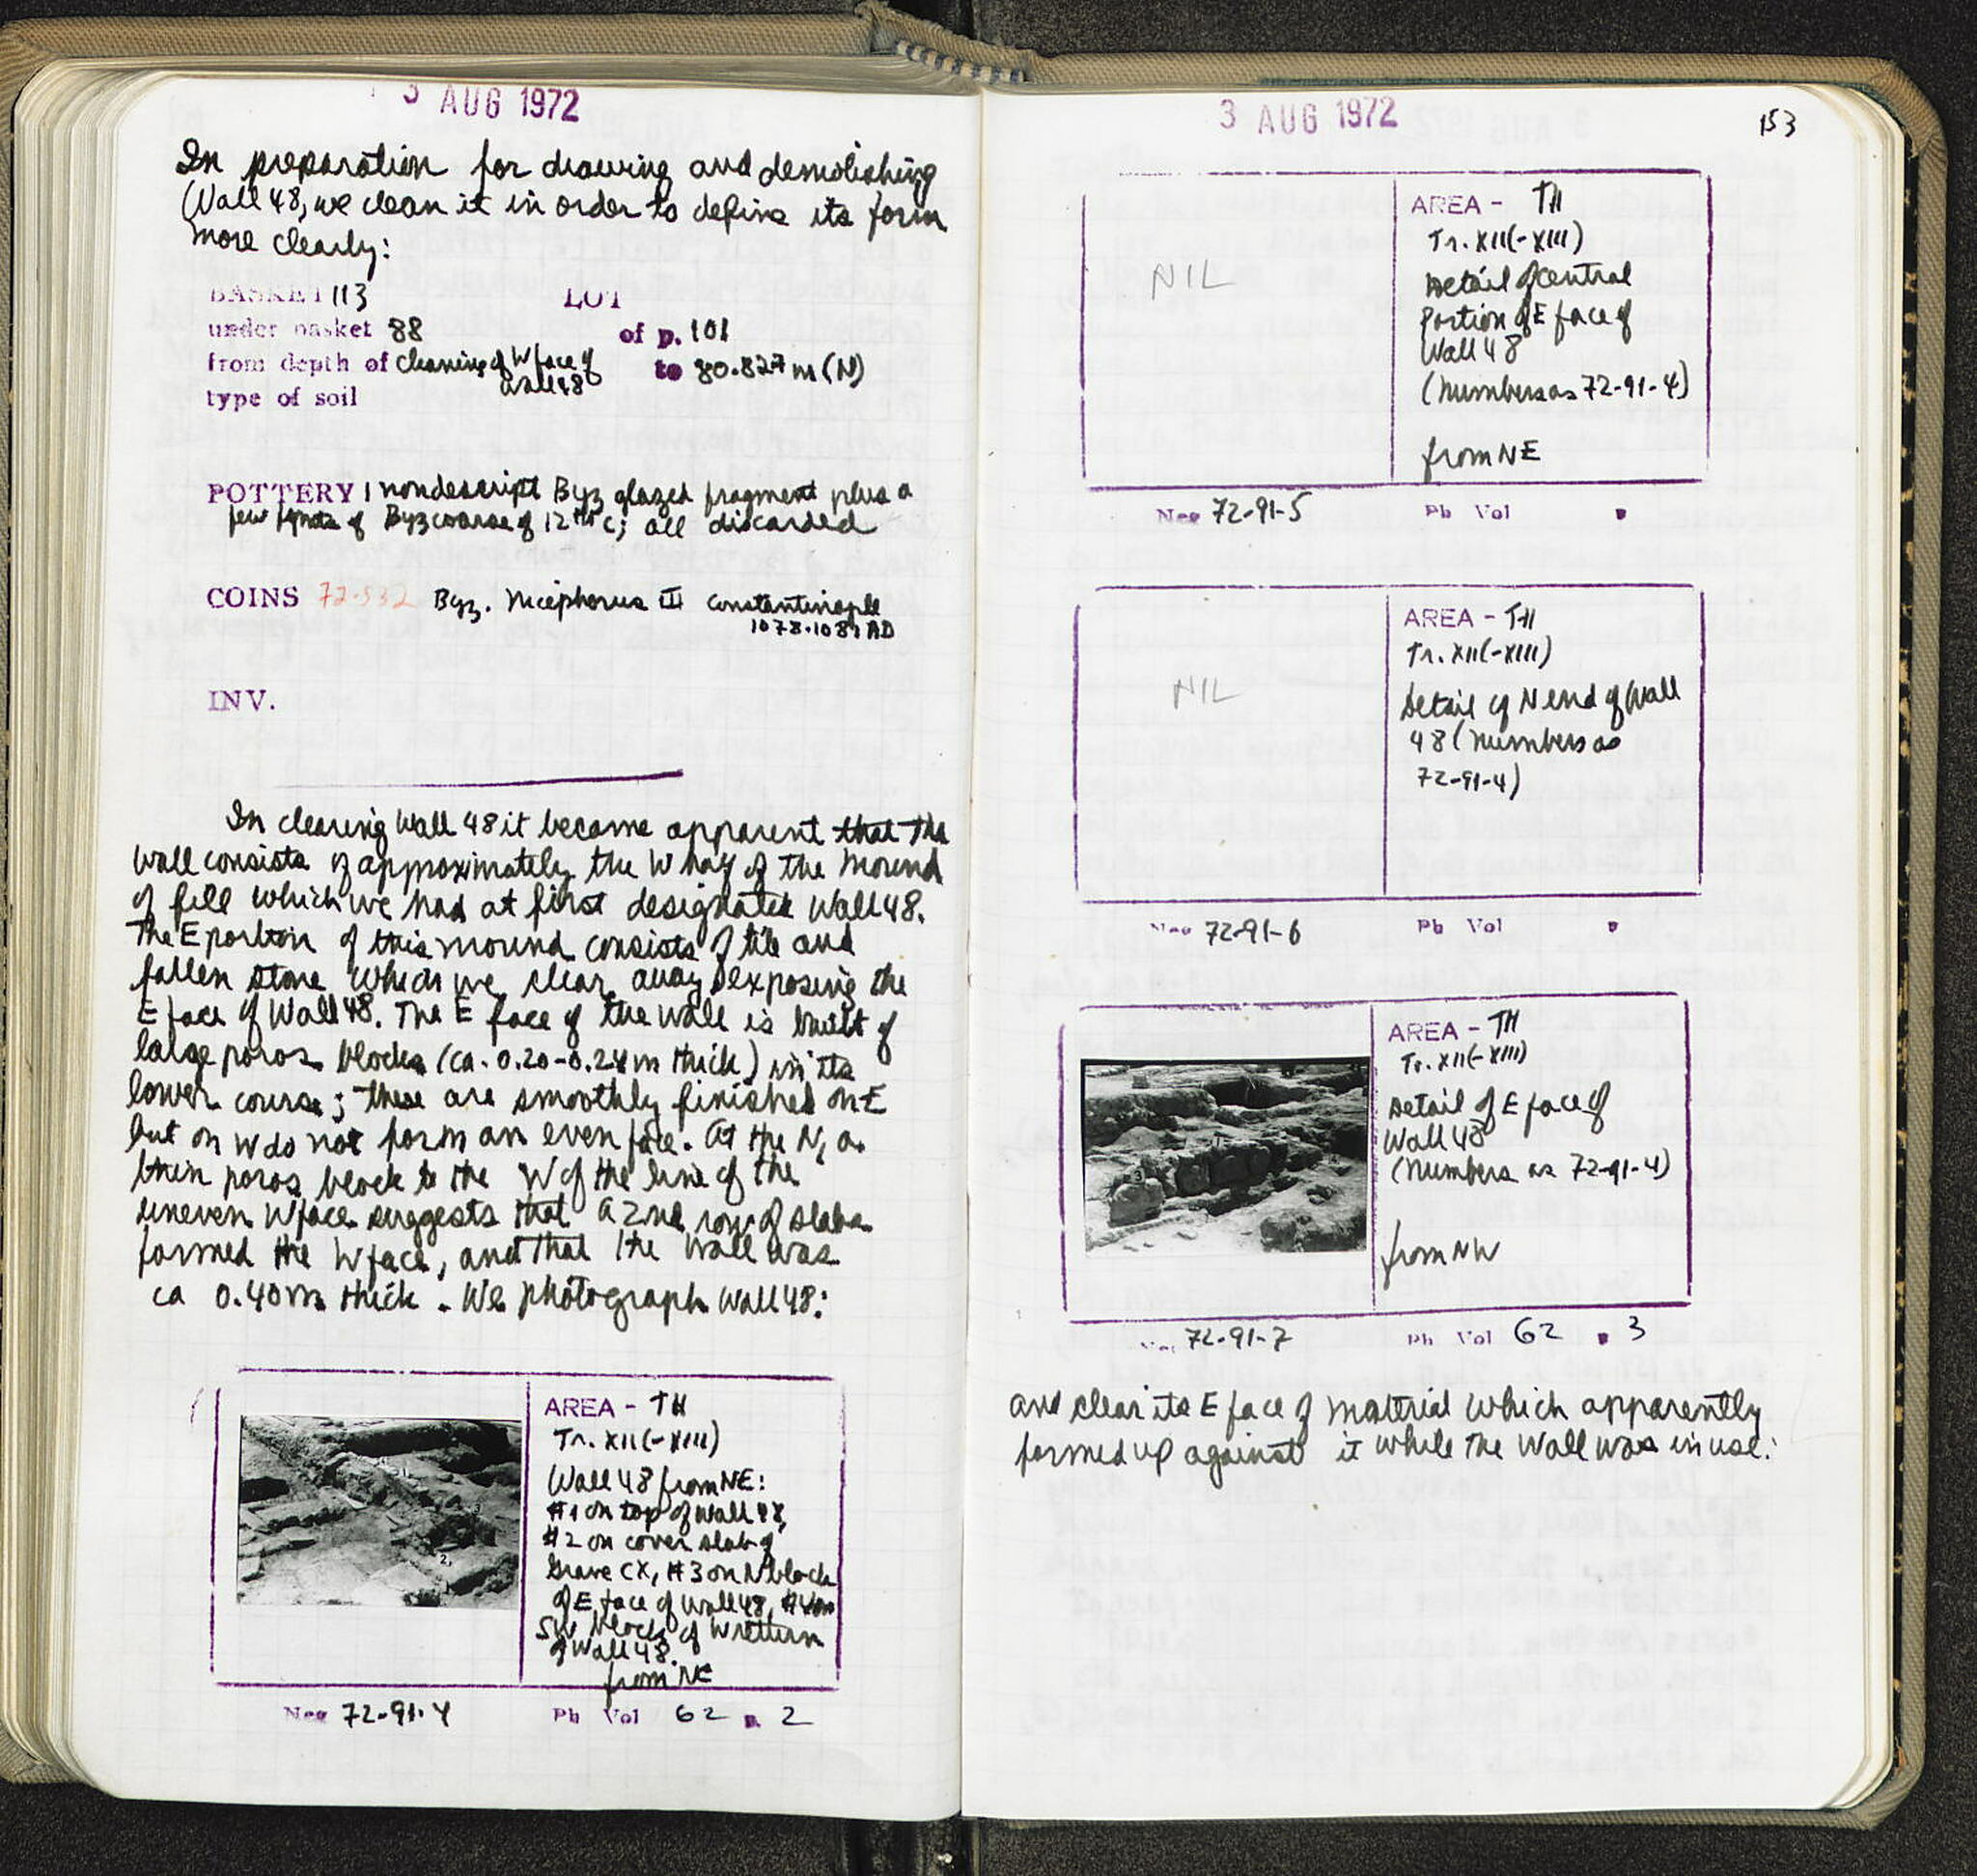 3 AUG 1972
In preparation for drawing and demolishing
Wall 48, we clean it in order to define its form
more clearly:
BASKET 113 LOT
under basket 88 of p. 101
from depth of cleaning of W face of Wall 48 to 80.827 m (N)
type of soil
POTTERY 1 nondescript Byz glazed fragment plus a
few fgmts of Byz coarse of 12th c; all discarded
COINS 72-532 Byz. Nicephorus III Constantinople
1078-1081 AD
INV.
In clearing Wall 48 it became apparent that the
wall consists of approximately the W half of the mound
of fill which we had at first designated Wall 48.
The E portion of this mound consists of tile and
fallen stone which we clear away exposing the
E face of Wall 48. The E face of the wall is built of
large poros blocks (ca. 0.20-0.24 m thick) in its
lower course; these are smoothly finished on E
but on W do not form an even face. At the N, a
thin poros block to the W of the line of the
uneven W face suggests that a 2nd row of slabs
formed the W face, and that the wall was
ca 0.40 m thick. We photograph Wall 48:
AREA - TH
Tr. XII(-XIII)
Wall 48 from NE:
#1 on top of Wall 48,
#2 on cover slab of
Grave CX, #3 on N block
of E face of Wall 48, #4 on
SW block of W return
of Wall 48.
from NE
Neg 72-91-4 Ph Vol 62 p. 2
3 AUG 1972
153
NIL
AREA - TH
Tr. XII(-XIII)
Detail of central
portion of E face of
Wall 48
(Numbers as 72-91-4)
from NE
Neg 72-91-5 Ph Vol p
NIL
AREA - TH
Tr. XII(-XIII)
Detail of N end of Wall
48 (numbers as
72-91-4)
Neg 72-91-6 Ph Vol p
AREA - TH
Tr. XII(-XIII)
Detail of E face of
Wall 48
(Numbers as 72-91-4)
from NW
72-91-7 Ph Vol 62 p 3
and clear its E face of material which apparently
formed up against it while the Wall was in use: